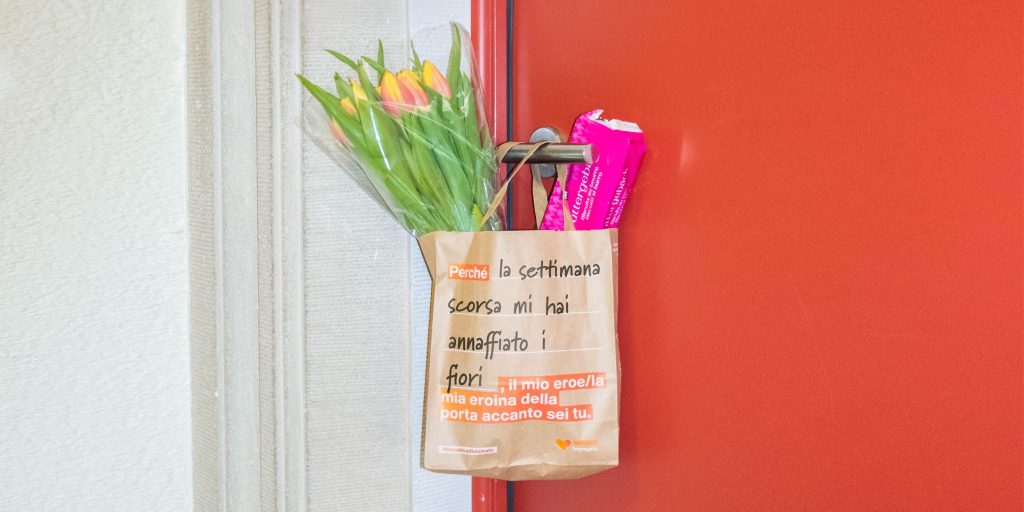 Perché la settimana
scorsa mi hai
annaffiato i
fiori, il mio eroe/la
mia eroina della
porta accanto sei tu.
impegno